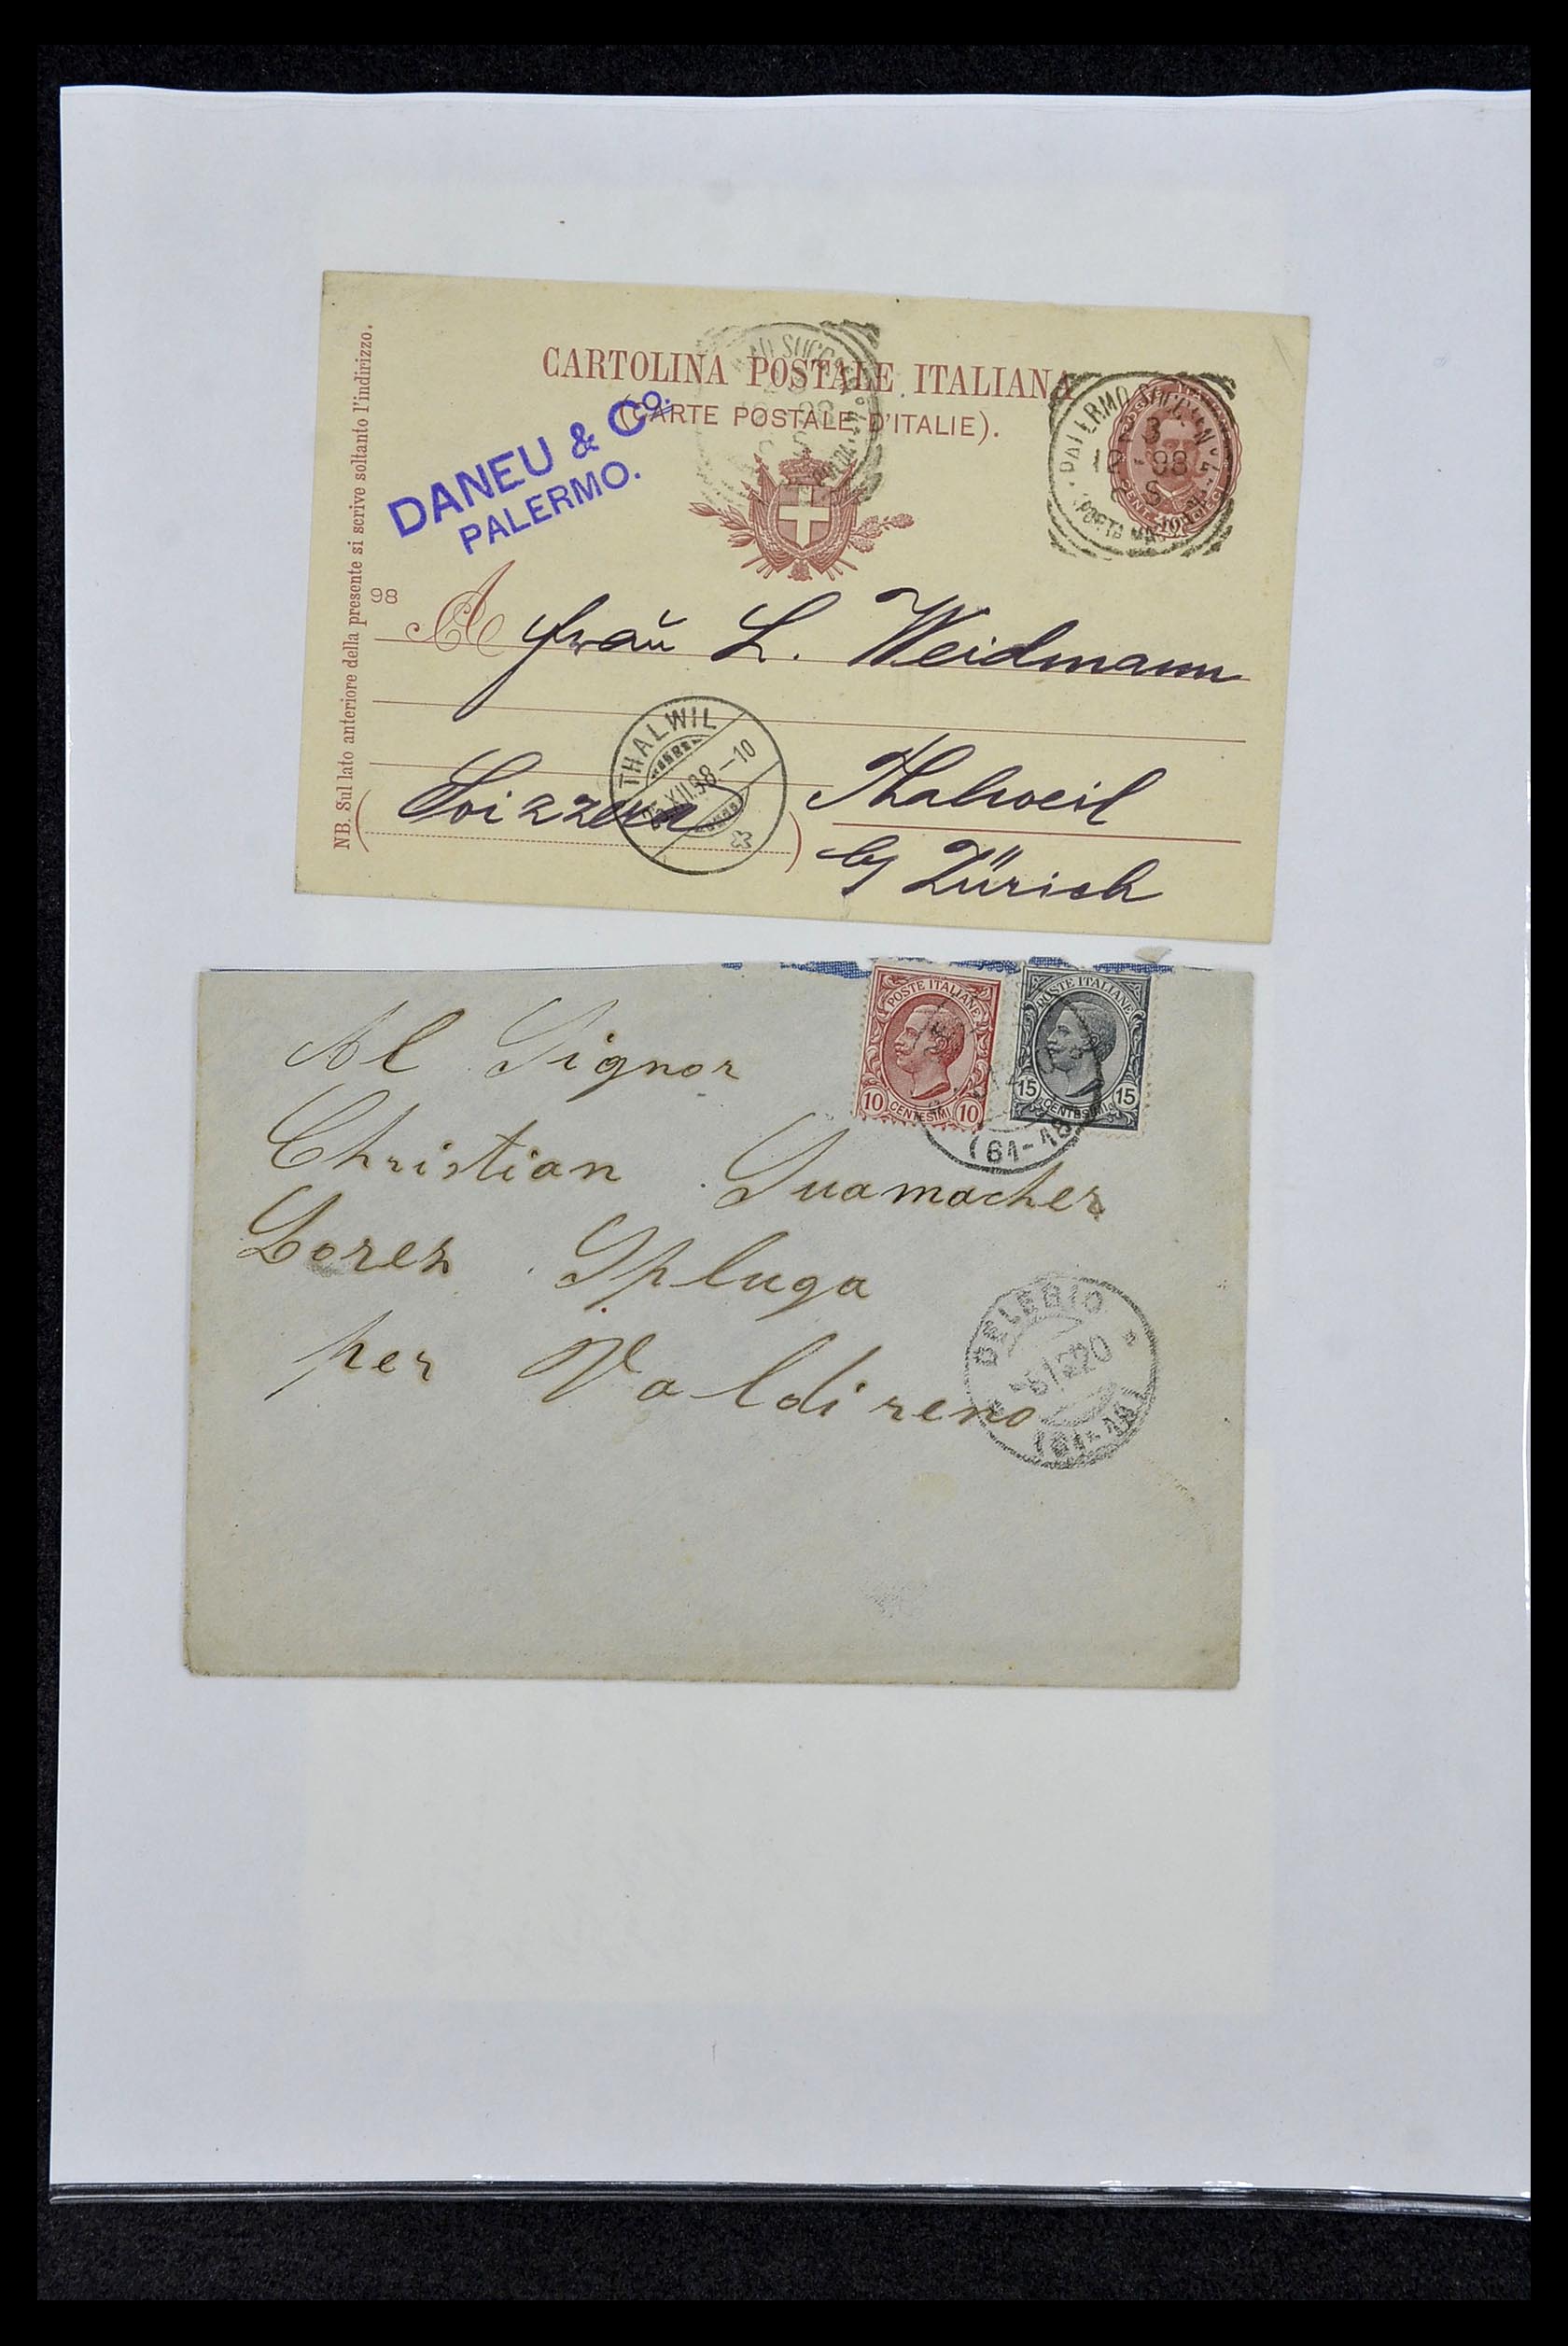 CARTOLINA POSTALE ITALIANA
(CARTE POSTALE D'ITALIE).
DANEU & Co.
PALERMO.
NB. Sul lato anteriore della presente si scrive soltanto l'indirizzo.
98
A Frau L. Weidmann
THALWIL
XII.98-10
(Svizzera)
Thalweil
by Zürich
PALERMO
98
POSTE ITALIANE
10 CENTESIMI 10
POSTE ITALIANE
15 CENTESIMI 15
(61-18)
Al Signor
Christian Suamacher
Sorez Spluga
per Valdireno
DELEBIO
20
(61-18)